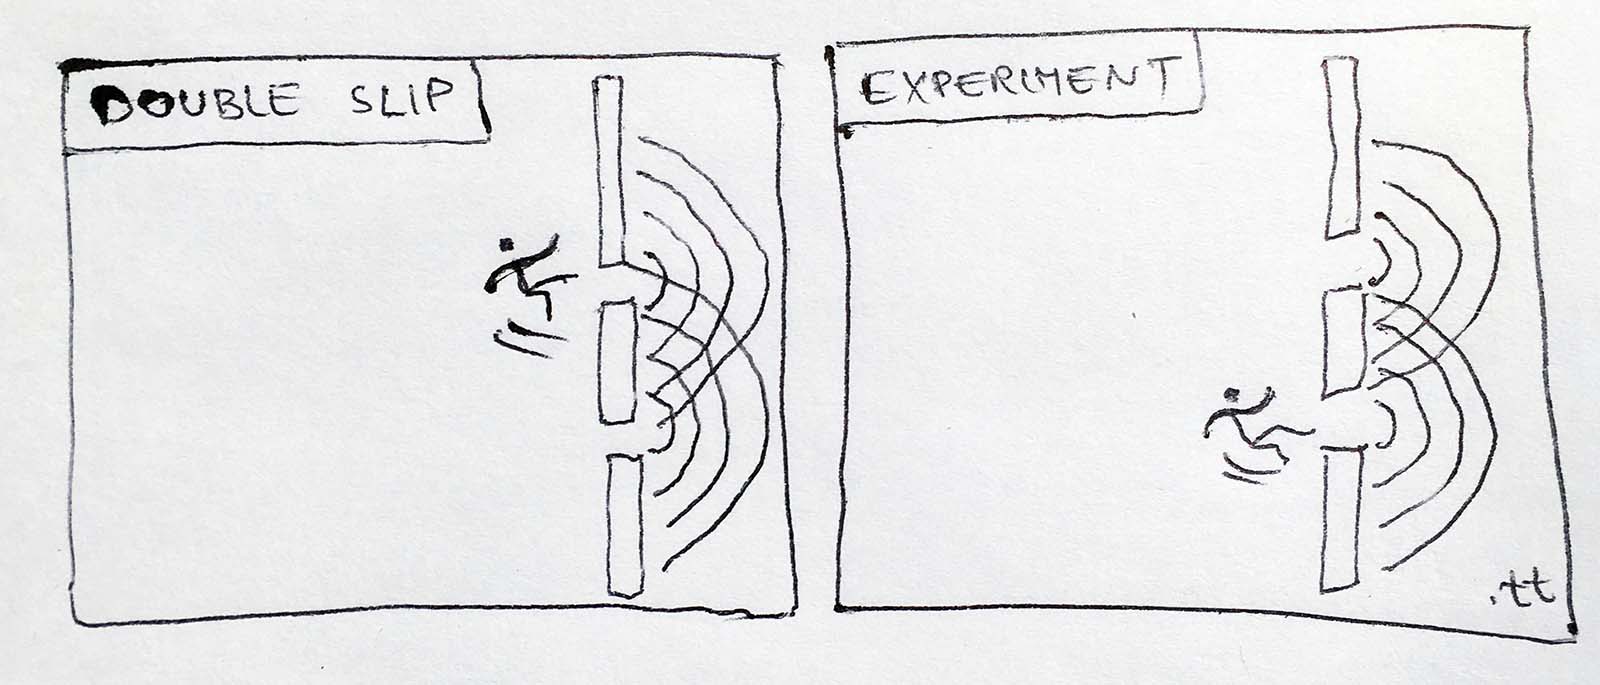 DOUBLE SLIP
EXPERIMENT
.tt